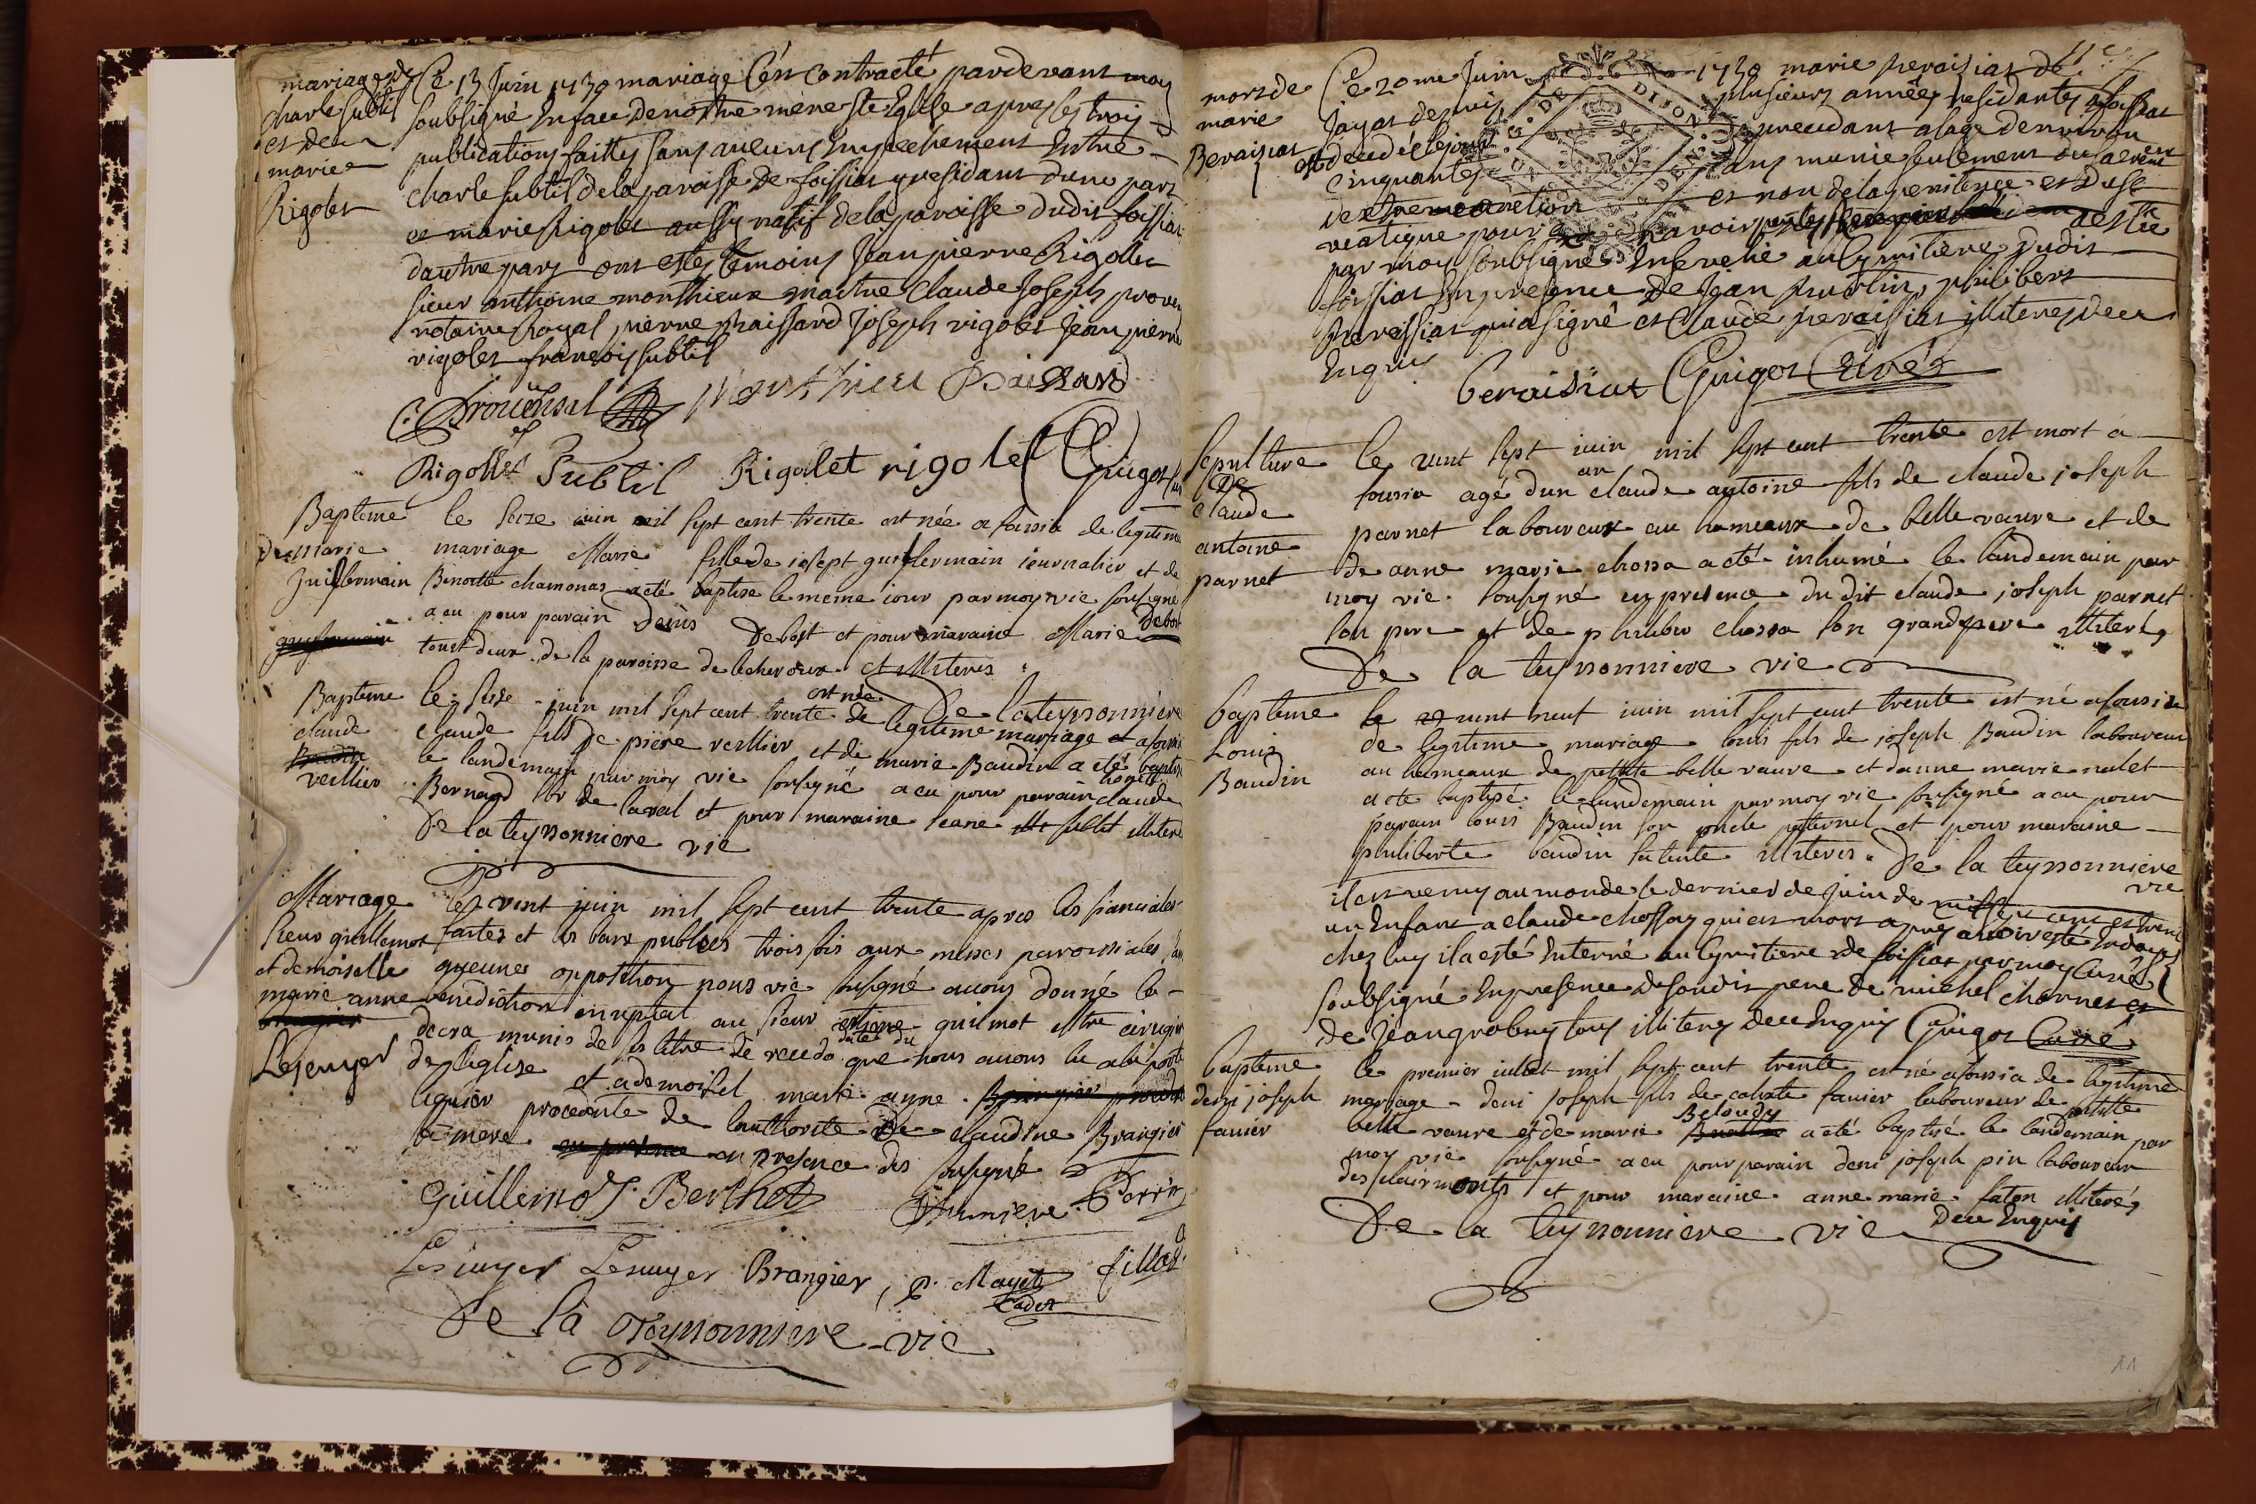 mariage de
charle subtil
et de
marie
Rigolet
Ce 13 Juin 1730 mariage s'est contracté pardevant moy
soubsigné En face de nostre mere ste Eglise apres les trois
publications faittes sans aucuns Empechement Entre
charle subtil de la paroisse de foissiat y residant dune part
et marie Rigolet aussy natif de la paroisse dudit foissiat
dautre part ont estes temoins Jean pierre Rigollet
sieur anthoine monthieux maitre Claude Joseph
notaire Royal pierre Joseph rigolet Jean pierre
rigolet francois subtil
Rigollet Subtil Rigolet rigolet Guigot
Bapteme
De Marie
le seize iuin mil sept cent trente est née a foissia de legitime
mariage Marie fille de iosept guillermain iournalier et de
Benoitte chamonas a eté baptisé le meme iour par moy vie sousigné
a eu pour parain Denis Debost et pour maraine Marie Debost
tout deux de la paroisse de lecheroux et illiteres
De lateyssonniere
Bapteme
claude
veillier
le seise juin mil sept cent trente est née de legitime mariage et a foissia
claude fils de piere veillier et de marie Baudin a eté baptisé
le landemain par moy vie sousigné a eu pour parain claude
Bernard de laval et pour maraine ieane subtil illiteré
De la teyssonniere vie
Mariage
sieur guillemot
et demoiselle
marie anne
Lescuyer
le vint juin mil sept cent trente apres les fiancialles
faites et les bans publies trois fois aux messes paroissiales sans
aucunes opposition nous vie sousigné avons donné la
benediction nuptial au sieur guilmot
munis de sa letre de recedo que nous avons lu
de l'église et a demoisel marie anne
procedante de lauthorite de claudine Brangier
sa mere en presence des sousigné
Guillemot Berthet Perrin
Lescuyer Lescuyer Brangier, P. Mayet
cadet
De la Teyssonniere vie
mort de
marie
Beraisiat
Ce 20me Juin 1730 marie peraisiat de
Jayat depuis plusieurs années residante a foissiat
est decedée le jour precedant a lage denviron
cinquante ans munie seulement du sacrement
de extreme onction et non de la penitence et du st
viatique pour navoir
par moy soubsigné Ensevelie au Cymitiere dudit
foissiat En presence de Jean philibert
peraissiat qui a signé et Claude peraissiat illiteres de ce
Enquis
Beraisiat Guigot Curé
sepulture
De
claude
antoine
parnet
le vint sept iuin mil sept cent trente est mort a
foussia agé dun an claude antoine fils de claude joseph
parnet laboureur au hameaux de belle vavre et de
de anne marie chossa a eté inhumé le landemain par
moy vie sousigné en presence du dit claude joseph parnet
son pere et de philiber chossa son grand pere illiterés
De la teyssonniere vie
bapteme
Louis
Baudin
le vint neuf iuin mil sept cent trente est né a foussia
de legitime mariage louis fils de joseph Baudin laboureur
au hameaux de petite belle vavre et danne marie nalet
a eté baptisé le landemain par moy vie sousigné a eu pour
parain louis Baudin son oncle paternel et pour maraine
philiberte baudin sa tente illiteres De la teyssonniere
vie
il est venu au monde le dernier de juin de mil sept cens et trente
un Enfant a claude chossat qui est mort apres avoir esté Endoyé
chez luy il a esté Enterré au Cymitiere de foissiat par moy Curé
soubsigné En presence de soudit pere de michel charnet et
de Jean tous illiteres de ce Enquis Guigot Curé
bapteme
deni joseph
favier
le premier iuillet mil sept cent trente est né a foussia de legitime
mariage deni joseph fils de calixte favier laboureur de petitte
belle vavre et de marie Beloudy a eté baptisé le landemain par
moy vie sousigné a eu pour parain deni joseph pin laboureur
des clairmonts et pour maraine anne marie faton illiterés
De la teyssonniere vie de ce Enquis
11